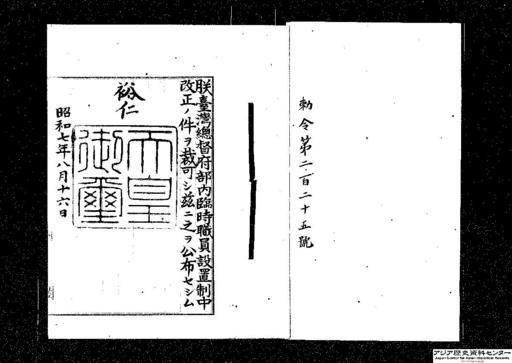 勅令第二百二十五號
朕臺灣總督府部內臨時職員設置制中
改正ノ件ヲ裁可シ茲ニ之ヲ公布セシム
裕仁
天皇
御璽
昭和七年八月十六日
アジア歴史資料センター
Japan Center for Asian Historical Records